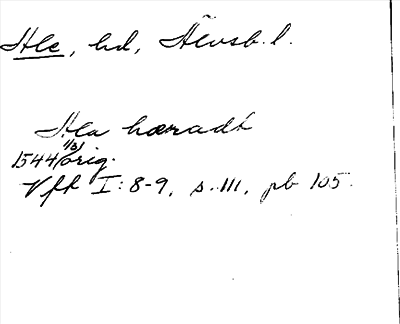 Ale, hd, Älvsb. l.
Ala hæradt
1544 1/3 orig.
Vfk I: 8-9, s. 111, pb 105.